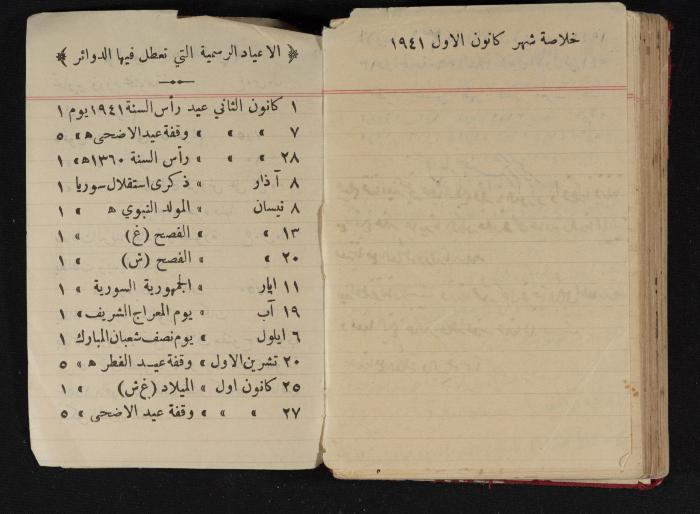 ﴿ الاعياد الرسمية التي تعطل فيها الدوائر ﴾
١ كانون الثاني عيد رأس السنة ١٩٤١ يوم ١
٧ » » » وقفة عيد الاضحى ه » ٥
٢٨ » » » رأس السنة ١٣٦٠ ه » ١
٨ آذار » ذكرى استقلال سوريا ١
٨ نيسان » المولد النبوي ه » ١
١٣ » » الفصح (غ) » ١
٢٠ » » الفصح (ش) » ١
١١ ايار » الجمهورية السورية » ١
١٩ آب » يوم المعراج الشريف » ١
٦ ايلول » يوم نصف شعبان المبارك ١
٢٠ تشرين الاول » وقفة عيد الفطر ه » ٥
٢٥ كانون اول » الميلاد (غ ش) » ١
٢٧ » » » وقفة عيد الاضحى » ٥
خلاصة شهر كانون الاول ١٩٤١